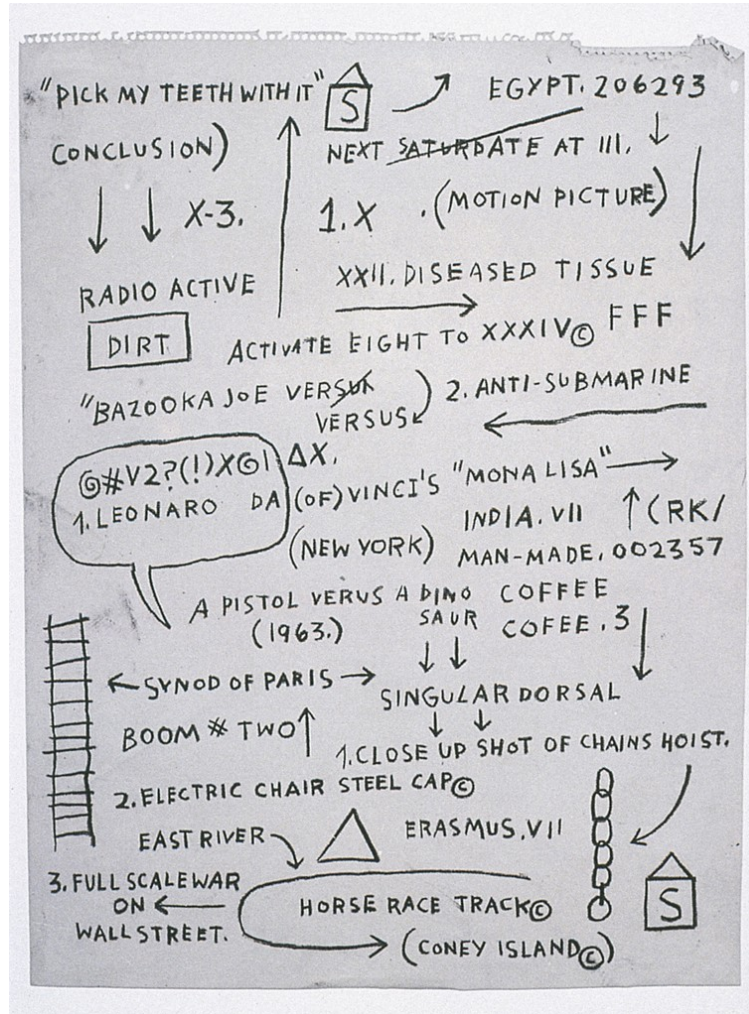 "PICK MY TEETH WITH IT" S EGYPT. 206293
CONCLUSION) NEXT SATURDATE AT III.
X-3. 1.X .(MOTION PICTURE)
RADIO ACTIVE XXII. DISEASED TISSUE
DIRT ACTIVATE EIGHT TO XXXIV© FFF
"BAZOOKA JOE VERSUK 2. ANTI-SUBMARINE
VERSUS
@#V2?(!)X@| ΔX. "MONA LISA"
1. LEONARO DA (OF) VINCI'S
INDIA. VII (RK/
(NEW YORK) MAN-MADE. 002357
A PISTOL VERUS A DINO COFFEE
(1963.) SAUR COFEE. 3
SYNOD OF PARIS SINGULAR DORSAL
BOOM # TWO
1. CLOSE UP SHOT OF CHAINS HOIST.
2. ELECTRIC CHAIR STEEL CAP©
EAST RIVER ERASMUS. VII
3. FULL SCALE WAR S
ON HORSE RACE TRACK©
WALL STREET. (CONEY ISLAND©)